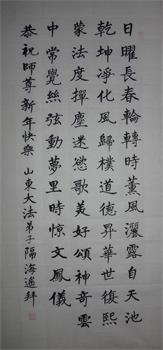 日曜長春輪轉時薰風灑露自天池
乾坤淨化風歸樸道德昇華世復熙
蒙法度揮塵迷慾歌美好頌神奇雲
中常覺絲弦動夢里時惊文鳳儀
恭祝師尊新年快樂 山東大法弟子隔海遙拜